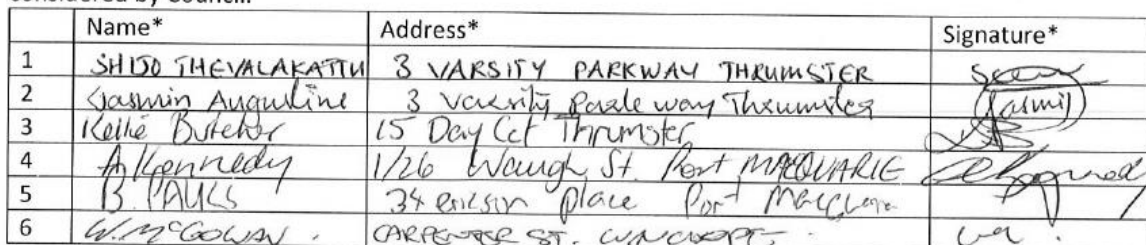 Name* Address* Signature*
1 SHIJO THEVALAKATTU 3 VARSITY PARKWAY THRUMSTER
2 Jasmin Augustine 3 varsity Parkway Thrumster Jasmin
3 Kellie Butcher 15 Day Cct Thrumster
4 A Kennedy 1/26 Waugh St. Port MACQUARIE
5 B. 34 place Port Macquarie
6 W. McGOWAN. CARPENTER ST.